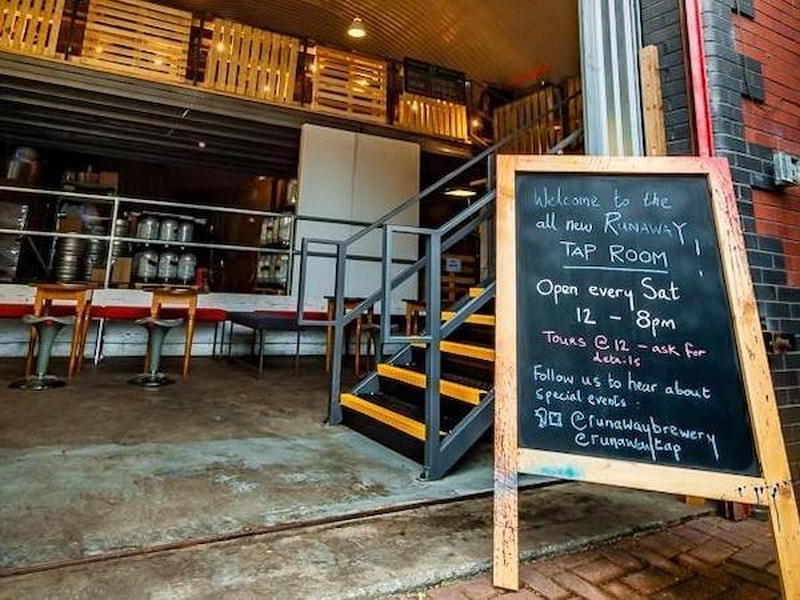 Welcome to the
all new RUNAWAY
TAP ROOM !
Open every Sat
12 - 8pm
TOURS @ 12 - ask for
details
Follow us to hear about
special events :
@runawaybrewery
@runawaytap